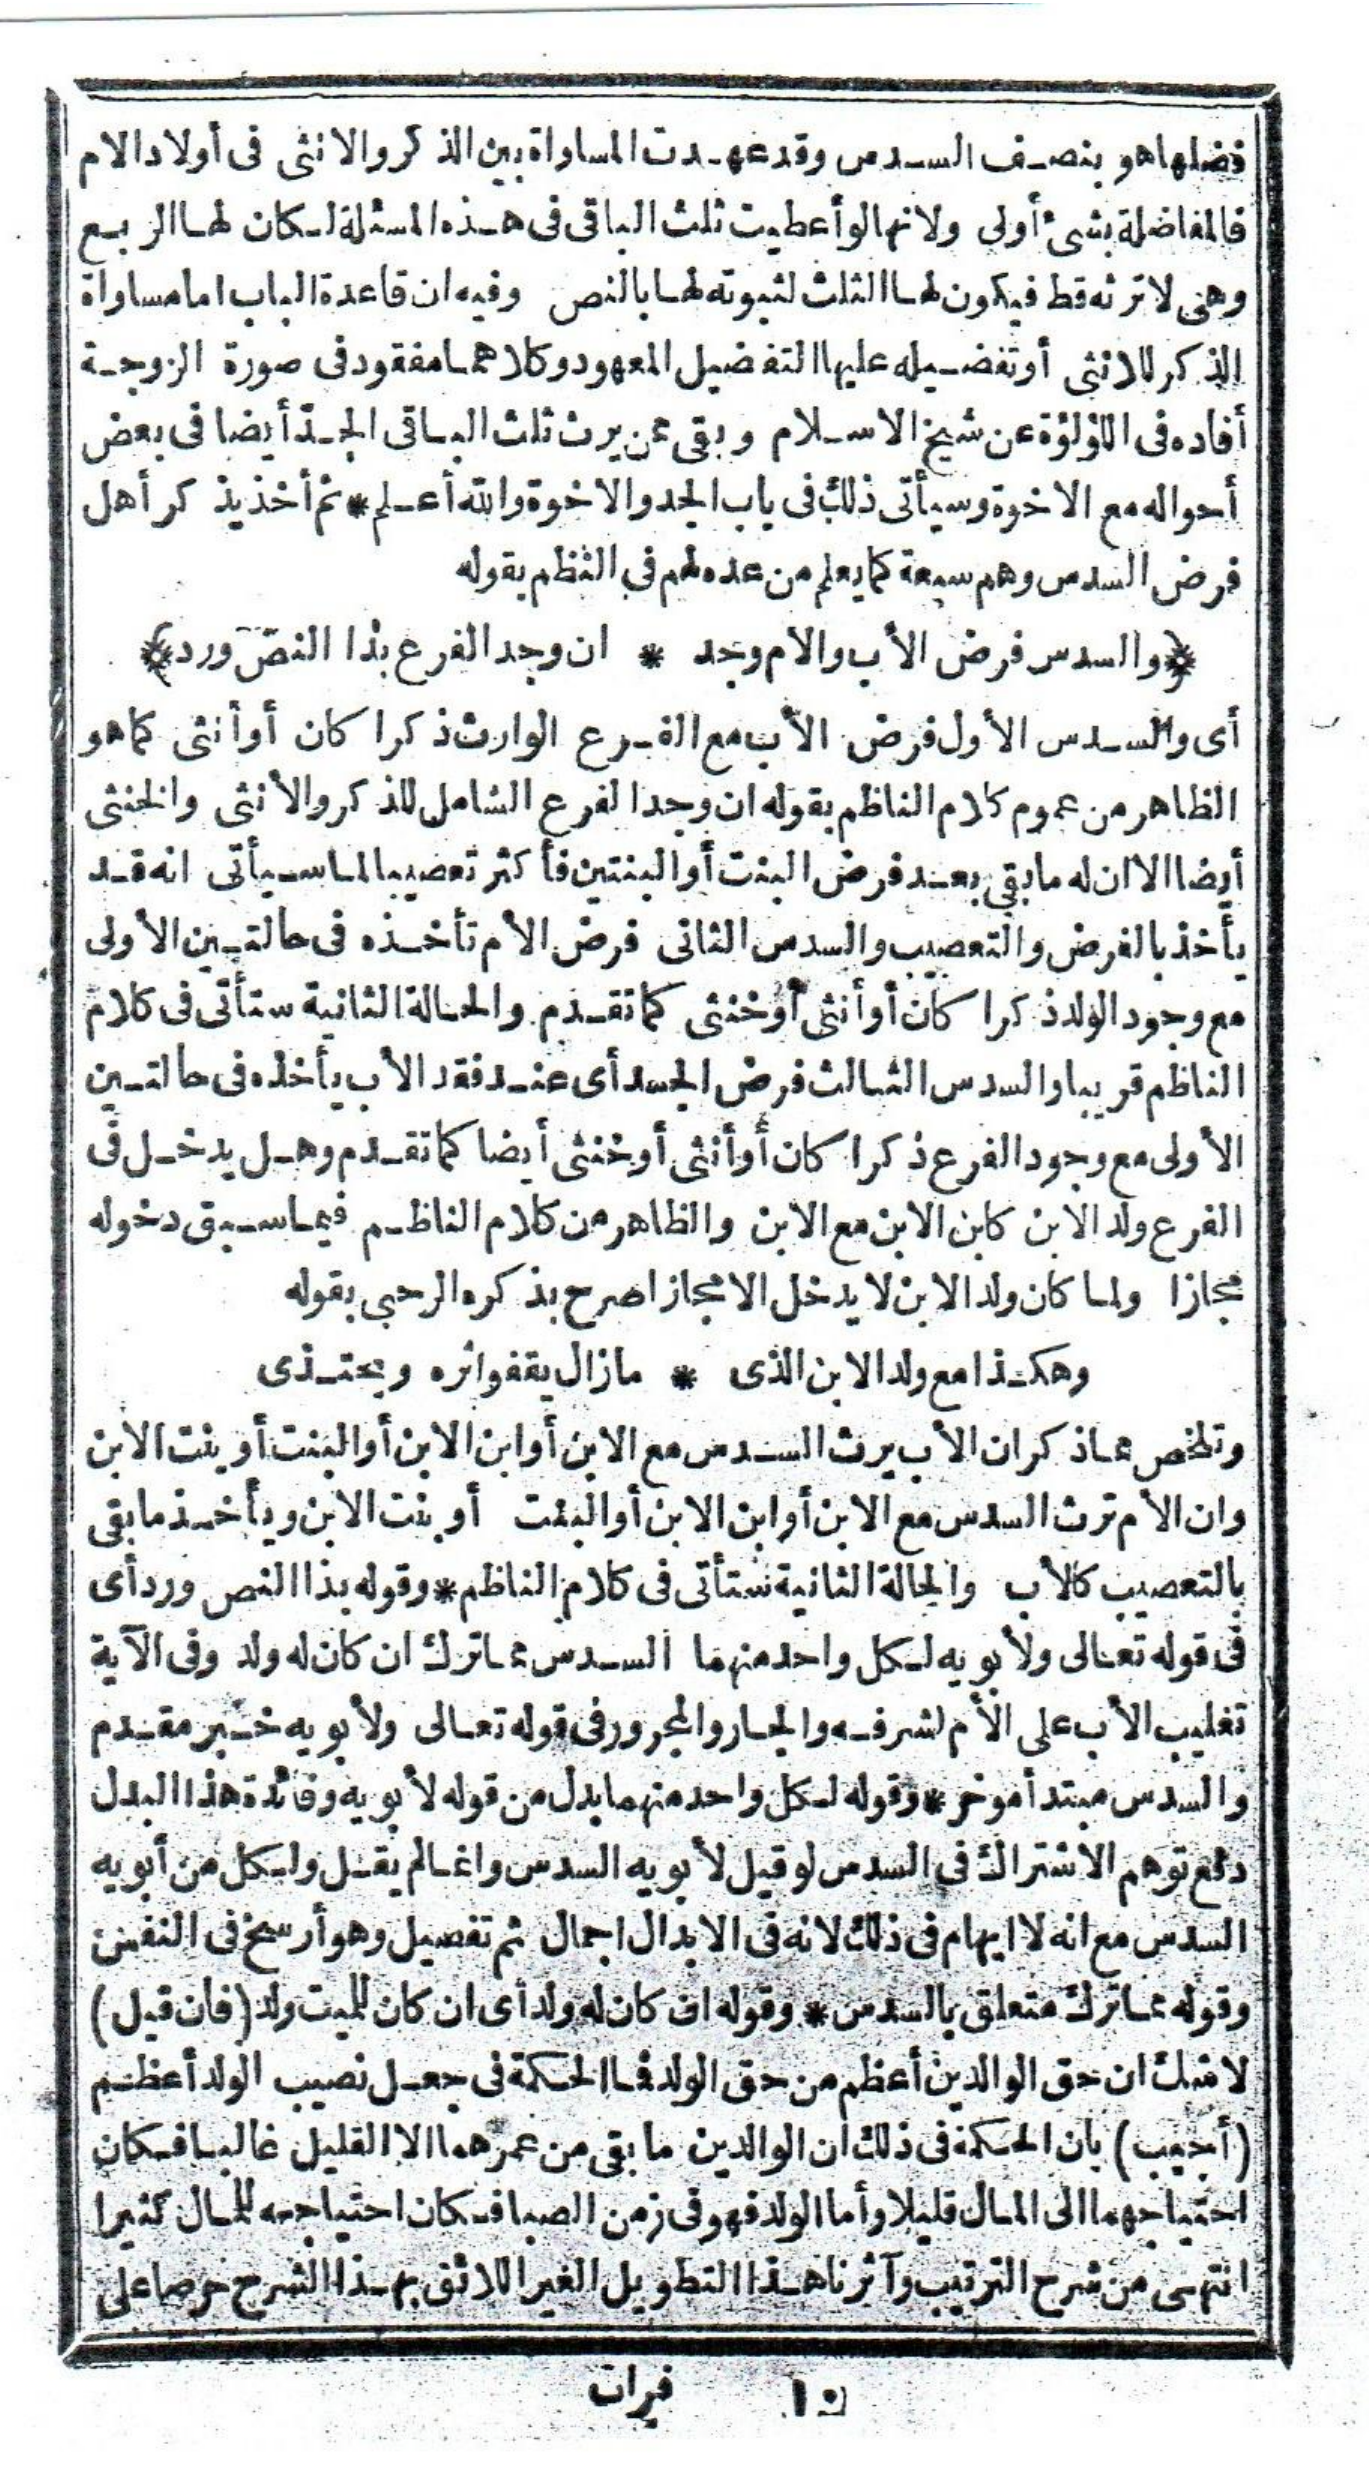 فضلها هو بنصف السدس وقد عهدت المساواة بين الذكر والانثى فى أولاد الام
فالمفاضلة بشئ أولى ولانها لو أعطيت ثلث الباقى فى هذه المسئلة لكان لها الربع
وهى لا ترثه قط فيكون لها الثلث لثبوته لها بالنص وفيه ان قاعدة الباب اما مساواة
الذكر للانثى أو تفضيله عليها التفضيل المعهود وكلاهما مفقود فى صورة الزوجة
أفاده فى اللؤلؤة عن شيخ الاسلام وبقى ممن يرث ثلث الباقى الجدّ أيضا فى بعض
أحواله مع الاخوة وسيأتى ذلك فى باب الجد والاخوة والله أعلم * ثم أخذ يذكر أهل
فرض السدس وهم سبعة كما يعلم من عده لهم فى النظم بقوله
﴿والسدس فرض الأب والام وجد * ان وجد الفرع بذا النصّ ورد﴾
أى والسدس الأول فرض الأب مع الفرع الوارث ذكرا كان أو أنثى كما هو
الظاهر من عموم كلام الناظم بقوله ان وجد الفرع الشامل للذكر والأنثى والخنثى
أيضا الا ان له ما بقى بعد فرض البنت أو البنتين فأكثر تعصيبا لما سيأتى انه قد
يأخذ بالفرض والتعصيب والسدس الثانى فرض الأم تأخذه فى حالتين الأولى
مع وجود الولد ذكرا كان أو أنثى أو خنثى كما تقدم والحالة الثانية ستأتى فى كلام
الناظم قريبا والسدس الثالث فرض الجد أى عند فقد الأب يأخذه فى حالتين
الأولى مع وجود الفرع ذكرا كان أو أنثى أو خنثى أيضا كما تقدم وهل يدخل فى
الفرع ولد الابن كابن الابن مع الابن والظاهر من كلام الناظم فيما سبق دخوله
مجازا ولما كان ولد الابن لا يدخل الا مجازا صرح بذكره الرحبى بقوله
وهكذا مع ولد الابن الذى * مازال يقفو اثره ويحتذى
وتلخص مما ذكر ان الأب يرث السدس مع الابن أو ابن الابن أو البنت أو بنت الابن
وان الأم ترث السدس مع الابن أو ابن الابن أو البنت أو بنت الابن ويأخذ ما بقى
بالتعصيب كالأب والحالة الثانية ستأتى فى كلام الناظم * وقوله بذا النص ورد أى
فى قوله تعالى ولأبويه لكل واحد منهما السدس مما ترك ان كان له ولد وفى الآية
تغليب الأب على الأم لشرفه والجار والمجرور فى قوله تعالى ولأبويه خبر مقدم
والسدس مبتدأ موخر * وقوله لكل واحد منهما بدل من قوله لأبويه وفائدة هذا البدل
دفع توهم الاشتراك فى السدس لو قيل لأبويه السدس وانما لم يقل ولكل من أبويه
السدس مع انه لا ايهام فى ذلك لانه فى الابدال اجمال ثم تفصيل وهو أرسخ فى النفس
وقوله مما ترك متعلق بالسدس * وقوله ان كان له ولد أى ان كان للميت ولد (فان قيل)
لا شك ان حق الوالدين أعظم من حق الولد فما الحكمة فى جعل نصيب الولد أعظم
(أجيب) بان الحكمة فى ذلك ان الوالدين ما بقى من عمرهما الا القليل غالبا فكان
احتياجهما الى المال قليلا وأما الولد فهو فى زمن الصبا فكان احتياجه للمال كثيرا
انتهى من شرح الترتيب وآثرنا هذا التطويل الغير اللائق بهذا الشرح حرصا على
فرات